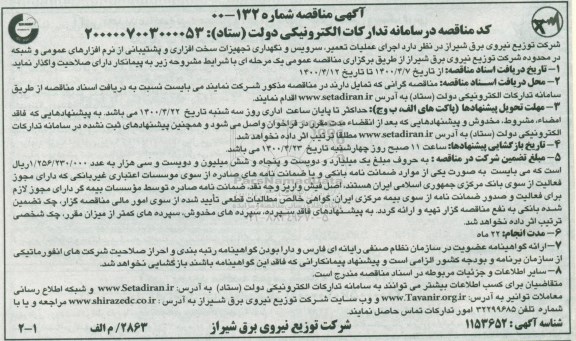 آگهی مناقصه شماره ۱۳۲-۰۰
کد مناقصه در سامانه تدارکات الکترونیکی دولت (ستاد): ۲۰۰۰۰۰۷۰۰۳۰۰۰۰۵۳
شرکت توزیع نیروی برق شیراز در نظر دارد اجرای عملیات تعمیر، سرویس و نگهداری تجهیزات سخت افزاری و پشتیبانی از نرم افزارهای عمومی و شبکه
در محدوده شرکت توزیع نیروی برق شیراز از طریق برگزاری مناقصه عمومی یک مرحله ای با شرایط مشروحه زیر به پیمانکار دارای صلاحیت واگذار نماید.
۱- تاریخ دریافت اسناد مناقصه: از تاریخ ۱۴۰۰/۳/۷ تا تاریخ ۱۴۰۰/۳/۱۲
۲- محل دریافت اسناد مناقصه: مناقصه گرانی که تمایل دارند در مناقصه مذکور شرکت نمایند می بایست نسبت به دریافت اسناد مناقصه از طریق
سامانه تدارکات الکترونیکی دولت (ستاد) به آدرس www.setadiran.ir اقدام نمایند.
۳- مهلت تحویل پیشنهادها (پاکت های الف، ب و ج): حداکثر تا پایان ساعت اداری روز سه شنبه تاریخ ۱۴۰۰/۳/۲۲ می باشد. به پیشنهادهایی که فاقد
امضاء، مشروط، مخدوش و پیشنهادهایی که بعد از انقضاء مدت مقرر در فراخوان واصل می شود و همچنین پیشنهادهای ثبت نشده در سامانه تدارکات
الکترونیکی دولت (ستاد) به آدرس www.setadiran.ir مطلقا ترتیب اثر داده نخواهد شد.
۴- تاریخ بازگشایی پیشنهادها: ساعت ۱۱ صبح روز چهارشنبه تاریخ ۱۴۰۰/۳/۲۳ می باشد.
۵- مبلغ تضمین شرکت در مناقصه : به حروف مبلغ یک میلیارد و دویست و پنجاه و شش میلیون و دویست و سی هزار به عدد ۱/۲۵۶/۲۳۰/۰۰۰ ریال
است که می بایست به صورت یکی از موارد ضمانت نامه بانکی و یا ضمانت نامه های صادره از سوی موسسات اعتباری غیربانکی که دارای مجوز
فعالیت از سوی بانک مرکزی جمهوری اسلامی ایران هستند، اصل فیش واریز وجه نقد، ضمانت نامه صادره توسط مؤسسات بیمه گر دارای مجوز لازم
برای فعالیت و صدور ضمانت نامه از سوی بیمه مرکزی ایران، گواهی خالص مطالبات قطعی تأیید شده از سوی امور مالی مناقصه گزار، چک تضمین
شده بانکی به نفع مناقصه گزار تهیه و ارائه گردد. به پیشنهادهای فاقد سپرده، سپرده های مخدوش، سپرده های کمتر از میزان مقرر، چک شخصی
ترتیب اثر داده نخواهد شد.
۶- مدت انجام: ۲۲ ماه
۷- ارائه گواهینامه عضویت در سازمان نظام صنفی رایانه ای فارس و دارا بودن گواهینامه رتبه بندی و احراز صلاحیت شرکت های انفورماتیکی
از سازمان برنامه و بودجه کشور الزامی است و پیشنهاد پیمانکارانی که فاقد این گواهینامه باشند بازگشایی نخواهد شد.
۸- سایر اطلاعات و جزئیات مربوطه در اسناد مناقصه مندرج است.
متقاضیان برای کسب اطلاعات بیشتر می توانند به سامانه تدارکات الکترونیکی دولت (ستاد) به آدرس: www.Setadiran.ir و شبکه اطلاع رسانی
معاملات توانیر به آدرس: www.Tavanir.org.ir و وب سایت شرکت توزیع نیروی برق شیراز به آدرس : www.shirazedc.co.ir مراجعه و یا با
شماره تلفن ۳۲۲۹۹۶۸۵ امور تدارکات تماس حاصل نمایند.
شناسه آگهی: ۱۱۵۳۶۵۲ شرکت توزیع نیروی برق شیراز ۲۸۶۳/م الف ۲-۱